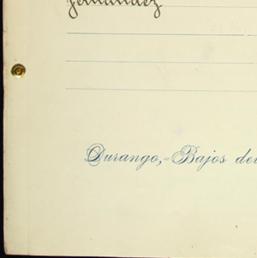 Fernandez
Durango,-Bajos del